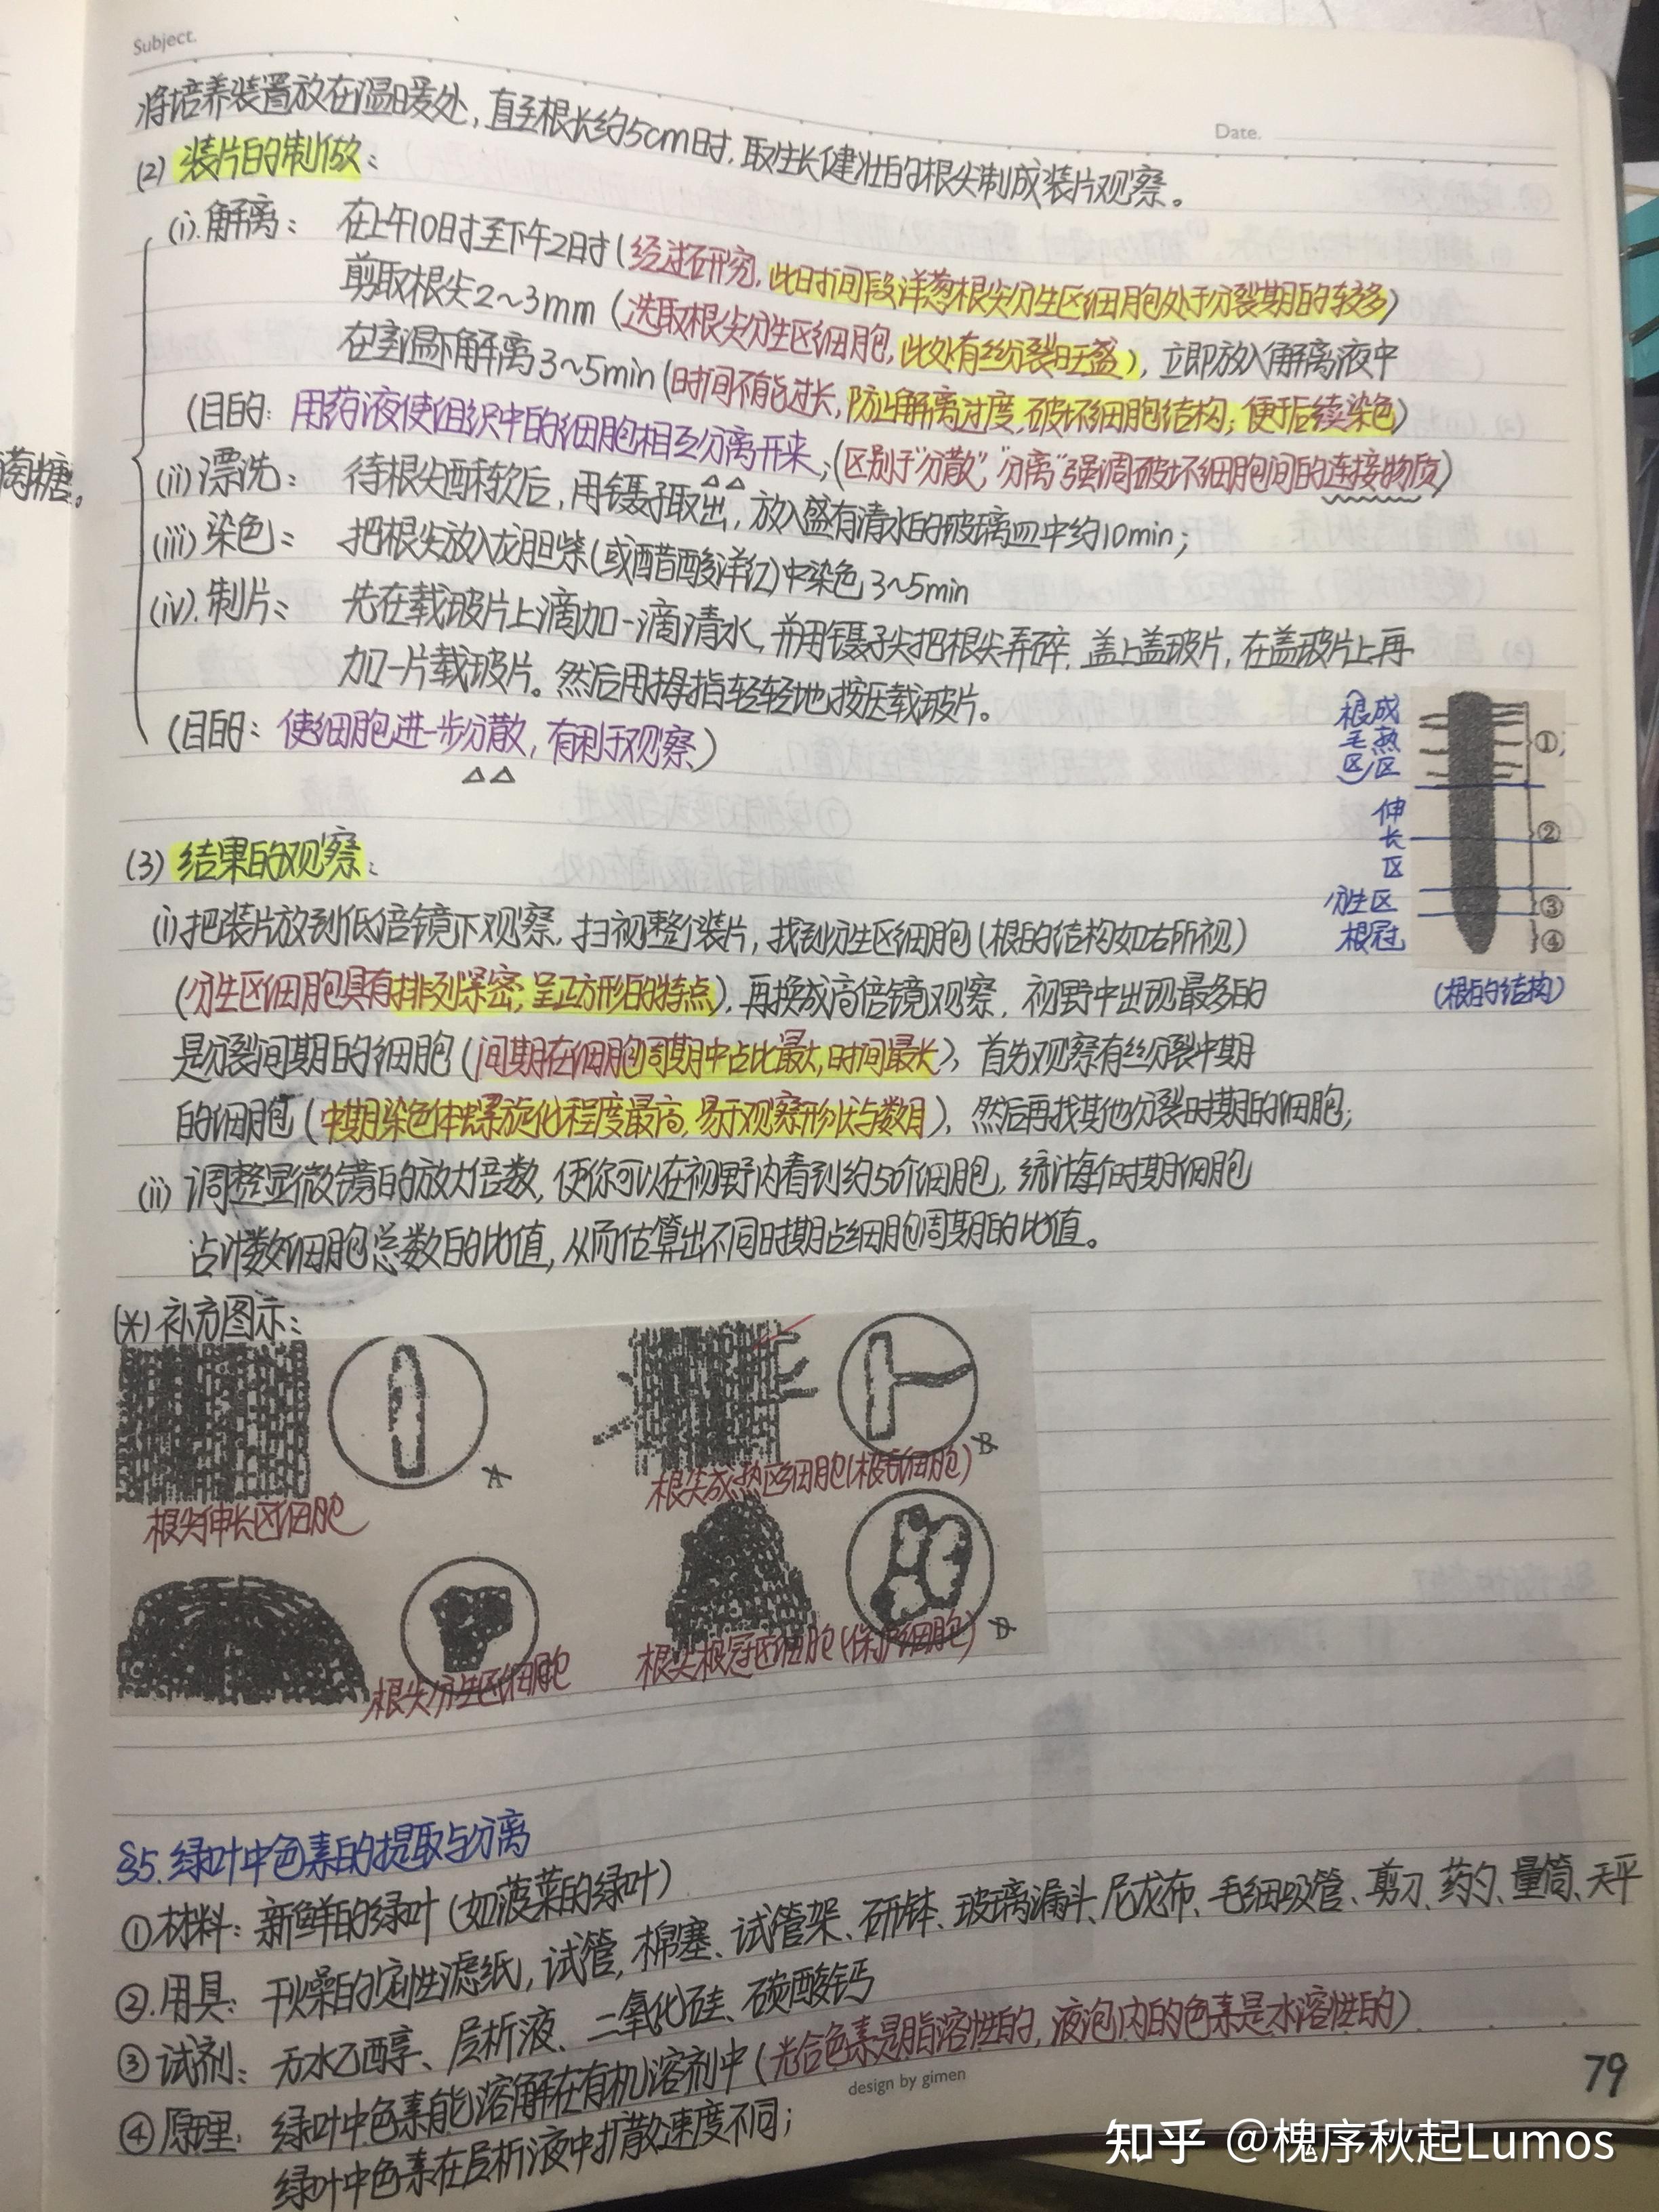 Subject.
Date.
将培养装置放在温暖处，直至根长约5cm时，取生长健壮的根尖制成装片观察。
(2) 装片的制做：
(i).解离： 在上午10时至下午2时(经过研究，此时间段洋葱根尖分生区细胞处于分裂期的较多)
剪取根尖2~3mm (选取根尖分生区细胞，此处有丝分裂旺盛)，立即放入解离液中
在室温下解离3~5min(时间不能过长，防止解离过度，破坏细胞结构；便于后续染色)
(目的：用药液使组织中的细胞相互分离开来；(区别于“分散”，“分离”强调破坏细胞间的连接物质)
葡糖。
(ii)漂洗： 待根尖酥软后，用镊子取出，放入盛有清水的玻璃皿中约10min；
(iii)染色： 把根尖放入龙胆紫(或醋酸洋红)中染色3~5min
(iv).制片： 先在载玻片上滴加一滴清水，并用镊子尖把根尖弄碎，盖上盖玻片，在盖玻片上再
加一片载玻片。然后用拇指轻轻地按压载玻片。
(目的：使细胞进一步分散，有利于观察)
根毛区 成熟区 ①
伸长区 ②
分生区 ③
根冠 ④
(根的结构)
(3) 结果的观察：
(i)把装片放到低倍镜下观察，扫视整个装片，找到分生区细胞(根的结构如右所视)
(分生区细胞具有排列紧密，呈正方形的特点)，再换成高倍镜观察，视野中出现最多的
是分裂间期的细胞(间期在细胞周期中占比最大，时间最长)，首先观察有丝分裂中期
的细胞(中期染色体螺旋化程度最高，易于观察形状与数目)，然后再找其他分裂时期的细胞；
(ii) 调整显微镜的放大倍数，使你可以在视野内看到约50个细胞，统计每个时期细胞
占计数细胞总数的比值，从而估算出不同时期占细胞周期的比值。
(*)补充图示：
A
B
根尖伸长区细胞
根尖成熟区细胞(根毛细胞)
D
根尖分生区细胞
根尖根冠区细胞(保护细胞)
§5.绿叶中色素的提取与分离
①材料：新鲜的绿叶(如菠菜的绿叶)
②.用具：干燥的定性滤纸，试管，棉塞、试管架、研钵、玻璃漏斗、尼龙布、毛细吸管、剪刀、药勺、量筒、天平
③试剂：无水乙醇、层析液、二氧化硅、碳酸钙
④原理：绿叶中色素能溶解在有机溶剂中(光合色素是脂溶性的，液泡内的色素是水溶性的)
绿叶中色素在层析液中扩散速度不同；
design by gimen
79
知乎 @槐序秋起Lumos